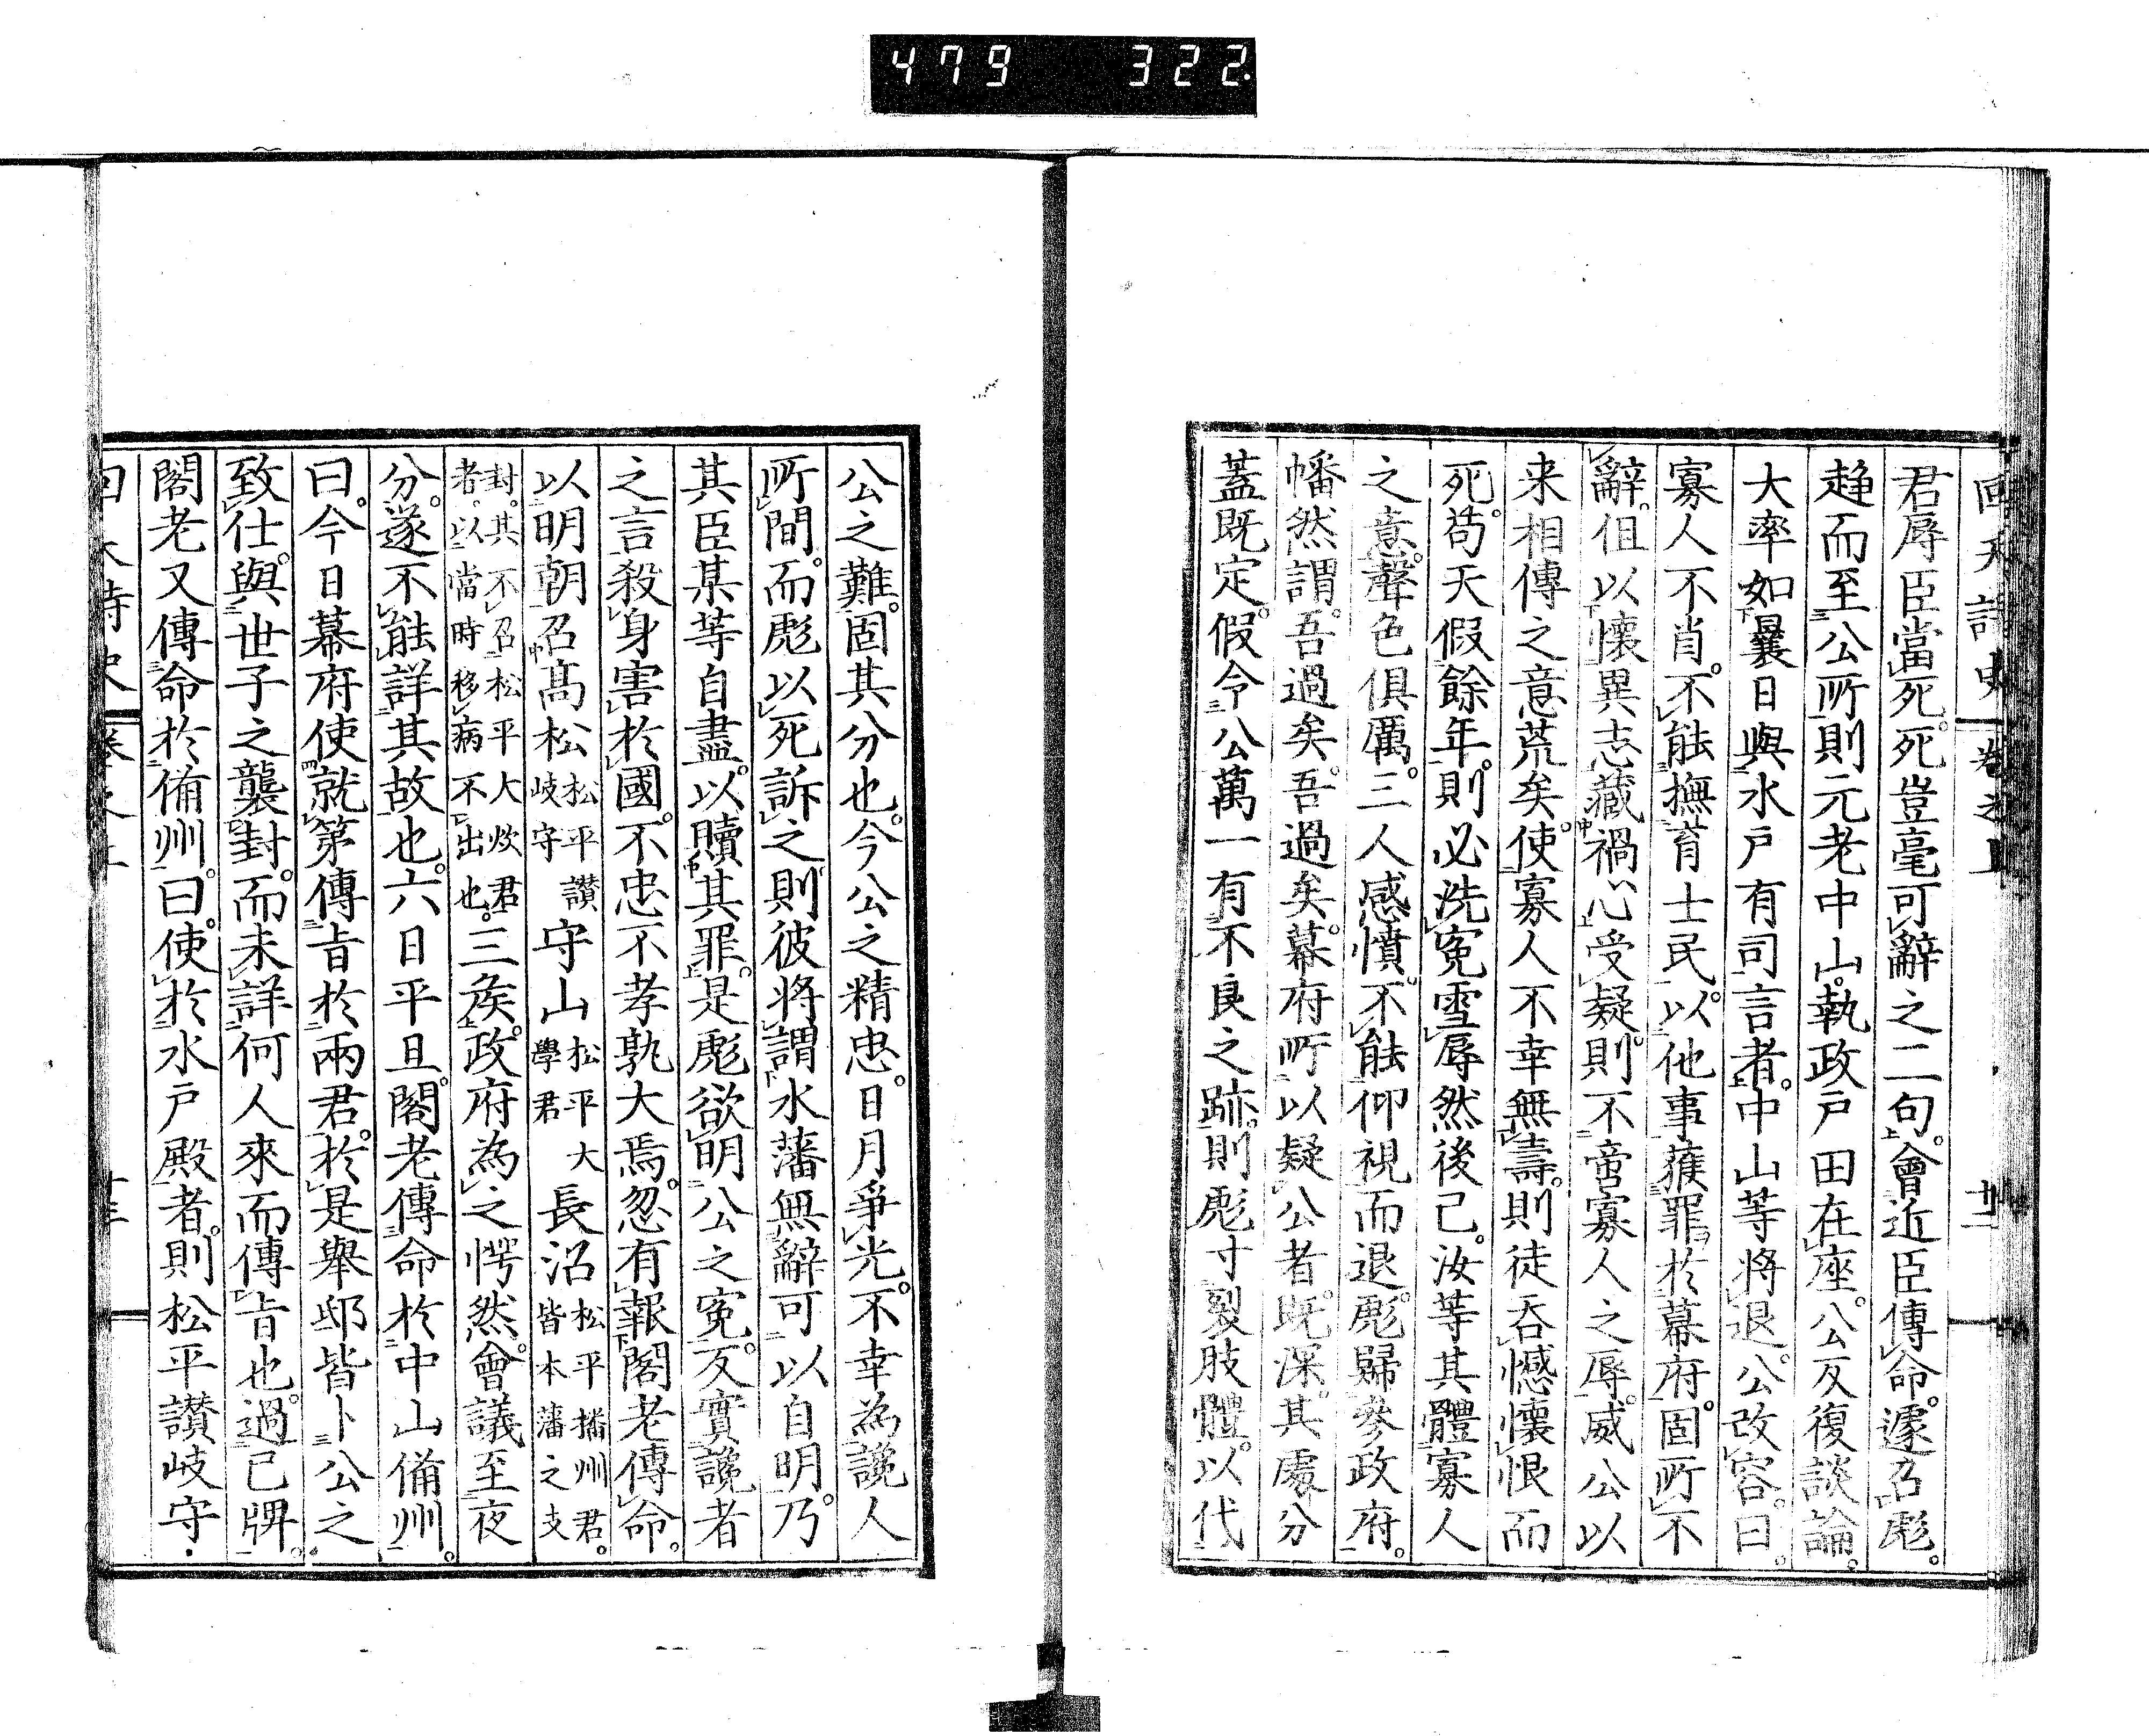 479 322
回天詩史 卷之上 廿二
君辱臣當死。死豈毫可辭之二句。會近臣傳命。遽召彪。
趍而至公所。則元老中山。執政戸田在座。公反復談論。
大率如曩日與水戸有司言者。中山等將退。公改容。曰。
寡人不肖。不能撫育士民。以他事獲罪於幕府。固所不
辭。伹以懷異志藏禍心受疑。則不啻寡人之辱。威公以
来相傳之意荒矣。使寡人不幸無壽。則徒呑憾懷恨而
死。苟天假餘年。則必洗冤雪辱然後己。汝等其體寡人
之意。聲色俱厲。三人感憤。不能仰視而退。彪歸參政府。
幡然謂。吾過矣。吾過矣。幕府所以疑公者。既深。其處分
蓋既定。假令公萬一有不良之跡。則彪寸裂肢體。以代
公之難。固其分也。今公之精忠。日月爭光。不幸為讒人
所間。而彪以死訴之。則彼將謂水藩無辭可以自明。乃
其臣某等自盡。以贖其罪。是彪欲明公之冤。反實讒者
之言。殺身害於國。不忠不孝孰大焉。忽有報閣老傳命。
以明朝召髙松松平讚岐守守山松平大學君長沼松平播州君。皆本藩之支
封。其不召松平大炊君者。以當時移病不出也。三矦。政府為之愕然。會議至夜
分。遂不能詳其故也。六日平旦。閣老傳命於中山備州。
曰。今日幕府使就第傳㫖於兩君。於是舉邸皆卜公之
致仕。與世子之襲封。而未詳何人來而傳㫖也。過已牌。
閣老又傳命於備州。曰。使於水戸殿者。則松平讃岐守。